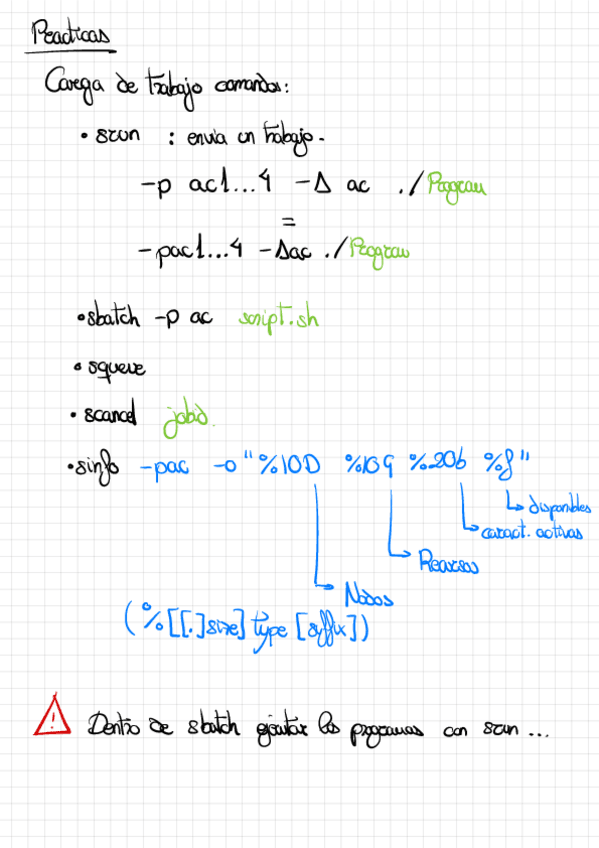 Practicas
Carga de trabajo comandos:
• srun : envia un trabajo.
-p ac1...4 -A ac ./Program
=
-pac1...4 -Aac ./Program
• sbatch -p ac script.sh
• squeue
• scancel jobid
• sinfo -pac -o "%10D %10G %20b %f"
disponibles
caract. activas
Recursos
Nodos
(%[[.]size]type[suffix])
Dentro de sbatch ejecutar los programas con srun ...